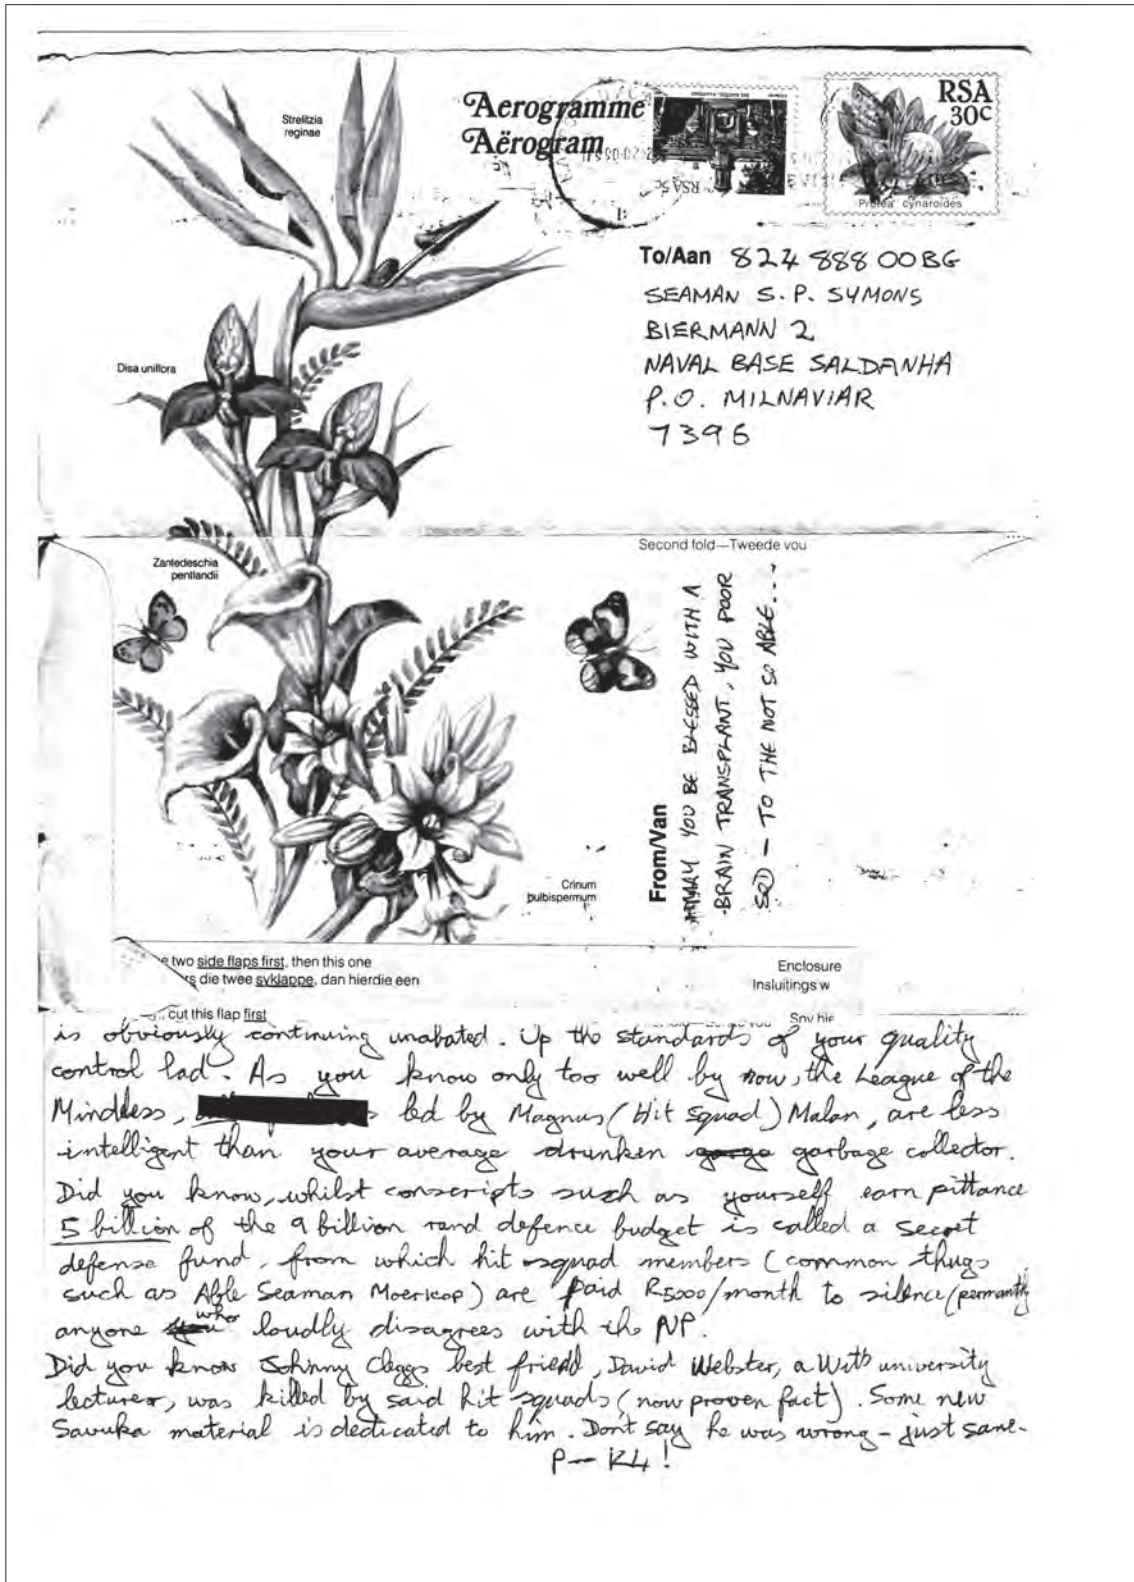 Strelitzia
reginae
Aerogramme
Aërogram
RSA 5c
RSA
30c
Protea cynaroides
To/Aan 82488800BG
SEAMAN S.P. SYMONS
BIERMANN 2
NAVAL BASE SALDANHA
P.O. MILNAVIAR
7396
Disa uniflora
Second fold—Tweede vou
Zantedeschia
pentlandii
From/Van
MAY YOU BE BLESSED WITH A
BRAIN TRANSPLANT, YOU POOR
SOD — TO THE NOT SO ABLE...
Crinum
bulbispermum
two side flaps first, then this one
die twee syklappe, dan hierdie een
Enclosure
Insluitings w
cut this flap first
is obviously continuing unabated. Up the standards of your quality
control lad. As you know only too well by now, the League of the
Mindless, led by Magnus (Hit Squad) Malan, are less
intelligent than your average drunken garbage collector.
Did you know, whilst conscripts such as yourself earn pittance
5 billion of the 9 billion rand defence budget is called a secret
defense fund, from which hit squad members (common thugs
such as Able Seaman Moerkop) are paid R5000/month to silence (permantly
anyone who loudly disagrees with the NP.
Did you know Johnny Cleggs best friend, David Webster, a Wits university
lecturer, was killed by said hit squads (now proven fact). Some new
Savuka material is dedicated to him. Don't say he was wrong - just sane.
P— K4!